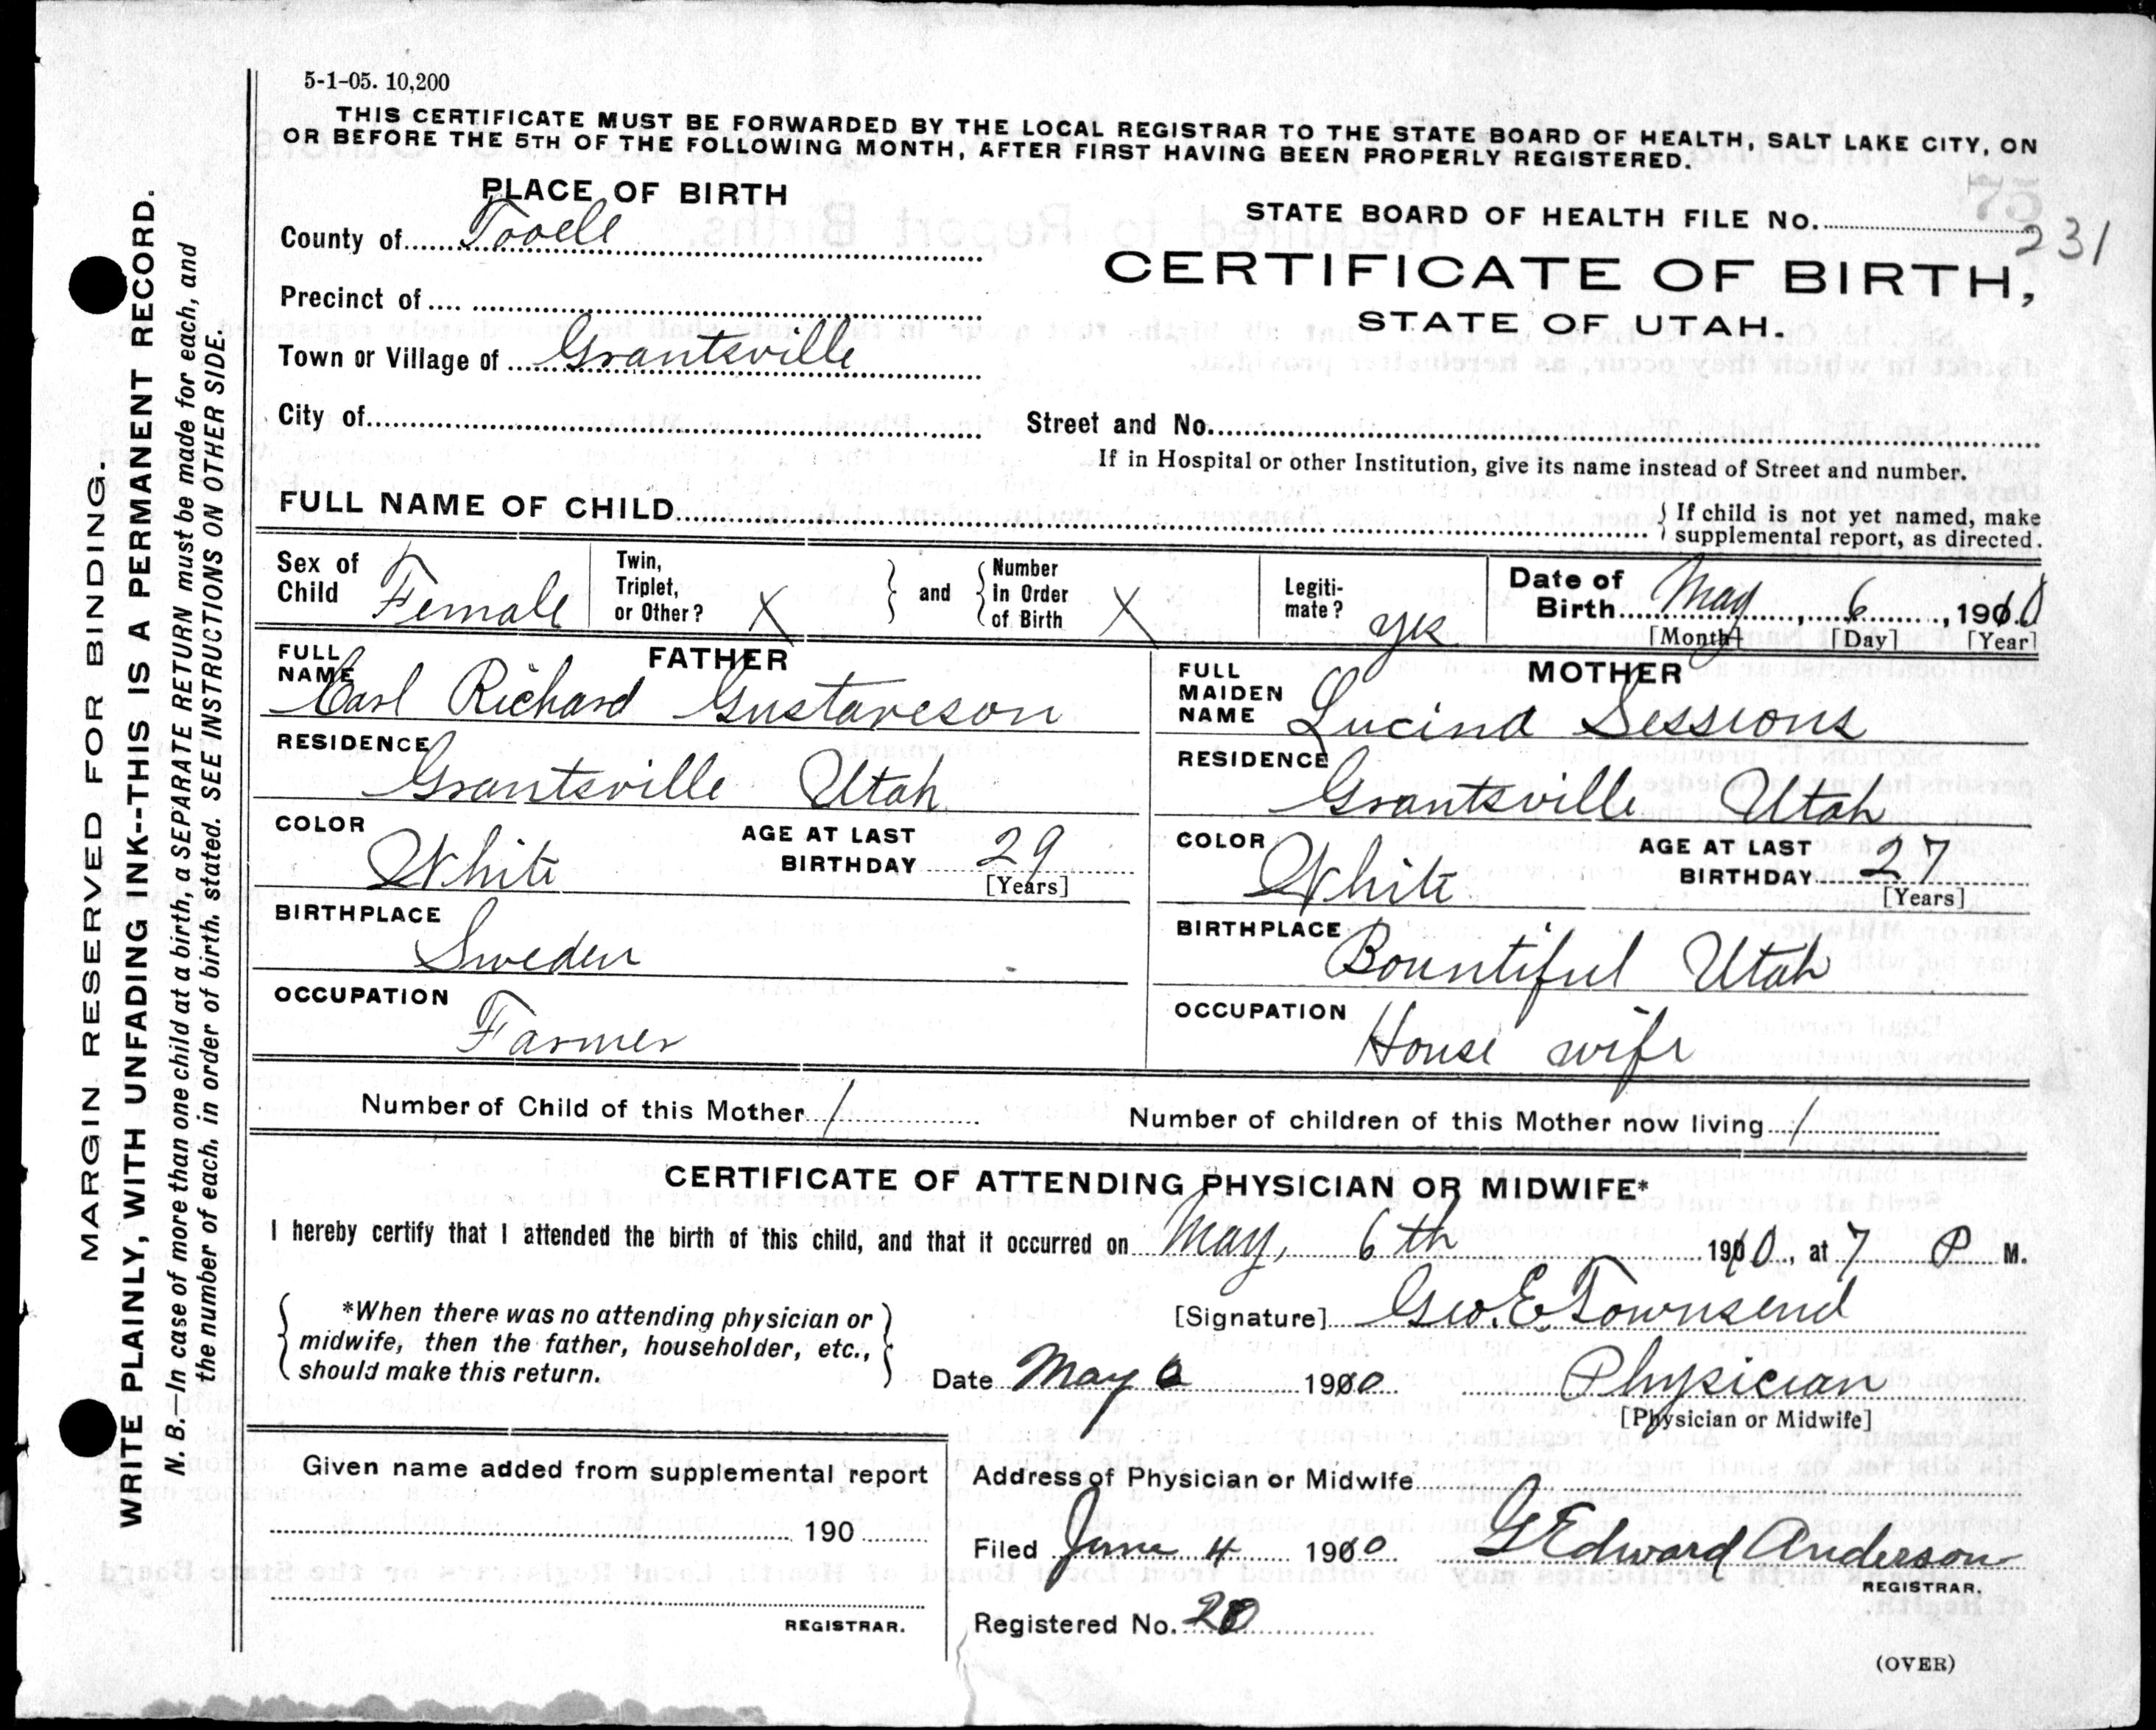 5-1-05. 10,200
THIS CERTIFICATE MUST BE FORWARDED BY THE LOCAL REGISTRAR TO THE STATE BOARD OF HEALTH, SALT LAKE CITY, ON
OR BEFORE THE 5TH OF THE FOLLOWING MONTH, AFTER FIRST HAVING BEEN PROPERLY REGISTERED.
PLACE OF BIRTH
75
STATE BOARD OF HEALTH FILE No.
231
County of Tooele
CERTIFICATE OF BIRTH,
Precinct of
STATE OF UTAH.
Town or Village of Grantsville
City of
Street and No.
If in Hospital or other Institution, give its name instead of Street and number.
FULL NAME OF CHILD
If child is not yet named, make
supplemental report, as directed.
Sex of Child Female
Twin, Triplet, or Other? X
and
Number in Order of Birth X
Legiti-mate? yes
Date of Birth May 6, 1910
[Month] [Day] [Year]
FATHER
FULL NAME Carl Richard Gustaveson
RESIDENCE Grantsville Utah
COLOR White AGE AT LAST BIRTHDAY 29
[Years]
BIRTHPLACE Sweden
OCCUPATION Farmer
MOTHER
FULL MAIDEN NAME Lucind Sessions
RESIDENCE Grantsville Utah
COLOR White AGE AT LAST BIRTHDAY 27
[Years]
BIRTHPLACE Bountiful Utah
OCCUPATION House wife
Number of Child of this Mother 1
Number of children of this Mother now living 1
CERTIFICATE OF ATTENDING PHYSICIAN OR MIDWIFE*
I hereby certify that I attended the birth of this child, and that it occurred on May, 6th 1910, at 7 P M.
*When there was no attending physician or
midwife, then the father, householder, etc.,
should make this return.
[Signature] Geo. E. Townsend
Date May 6 1910 Physician
[Physician or Midwife]
Given name added from supplemental report
190
REGISTRAR.
Address of Physician or Midwife
Filed June 4 1910 G Edward Anderson
REGISTRAR.
Registered No. 20
(OVER)
MARGIN RESERVED FOR BINDING.
WRITE PLAINLY, WITH UNFADING INK--THIS IS A PERMANENT RECORD.
N. B.—In case of more than one child at a birth, a SEPARATE RETURN must be made for each, and
the number of each, in order of birth, stated. SEE INSTRUCTIONS ON OTHER SIDE.